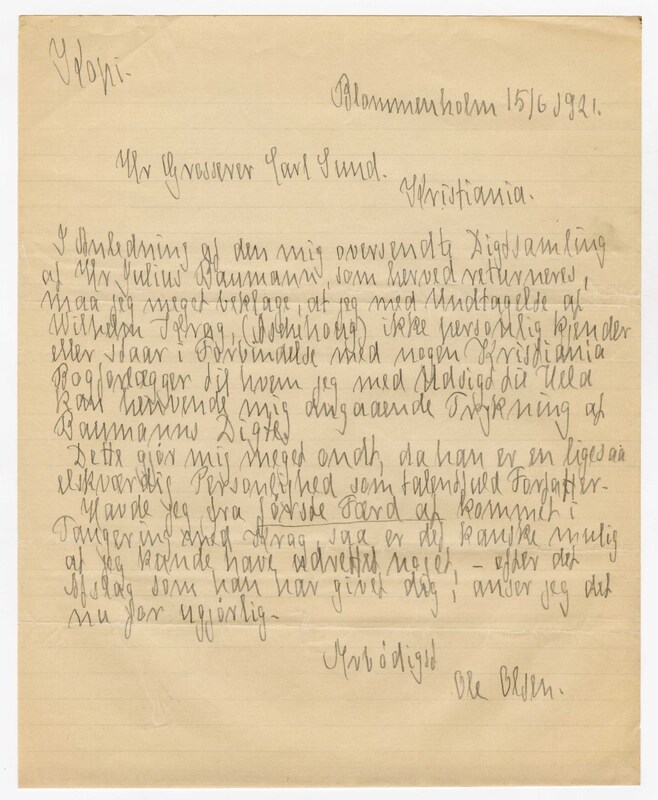 Kopi.
Blommenholm 15/6 1921.
Hr Grosserer Carl Sund.
Kristiania.
I Anledning af den mig oversendte Digtsamling
af Hr Julius Baumann, som herved returneres,
maa jeg meget beklage, at jeg med Undtagelse af
Wilhelm Krag, (Aschehoug) ikke personlig kjender
eller staar i Forbindelse med nogen Kristiania
Bogforlægger til hvem jeg med Udsigt til Held
kan henvende mig angaaende Trykning af
Baumanns Digte.
Dette gjör mig meget ondt, da han er en ligesaa
elskværdig Personlighed som talentfuld Forfatter-
Havde jeg fra förste Færd af kommet i
Tangering med Krag, saa er det kanske mulig
at jeg kunde have udrettet noget, - efter det
Afslag som han har givet dig, anser jeg det
nu for ugjörlig-
Arbödigst
Ole Olsen.